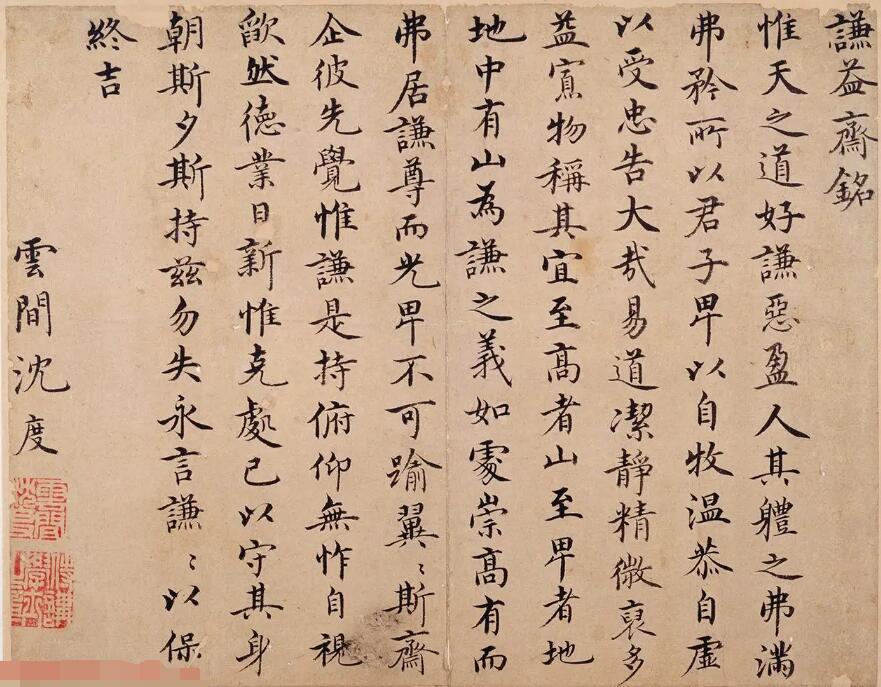 謙益齋銘
惟天之道好謙惡盈人其體之弗滿
弗矜所以君子卑以自牧温恭自虛
以受忠告大哉易道潔靜精微裒多
益寡物稱其宜至髙者山至卑者地
地中有山為謙之義如處崇髙有而
弗居謙尊而光卑不可踰翼〻斯齋
企彼先覺惟謙是持俯仰無怍自視
欿然德業日新惟克處已以守其身
朝斯夕斯持茲勿失永言謙〻以保
終吉
雲間沈度